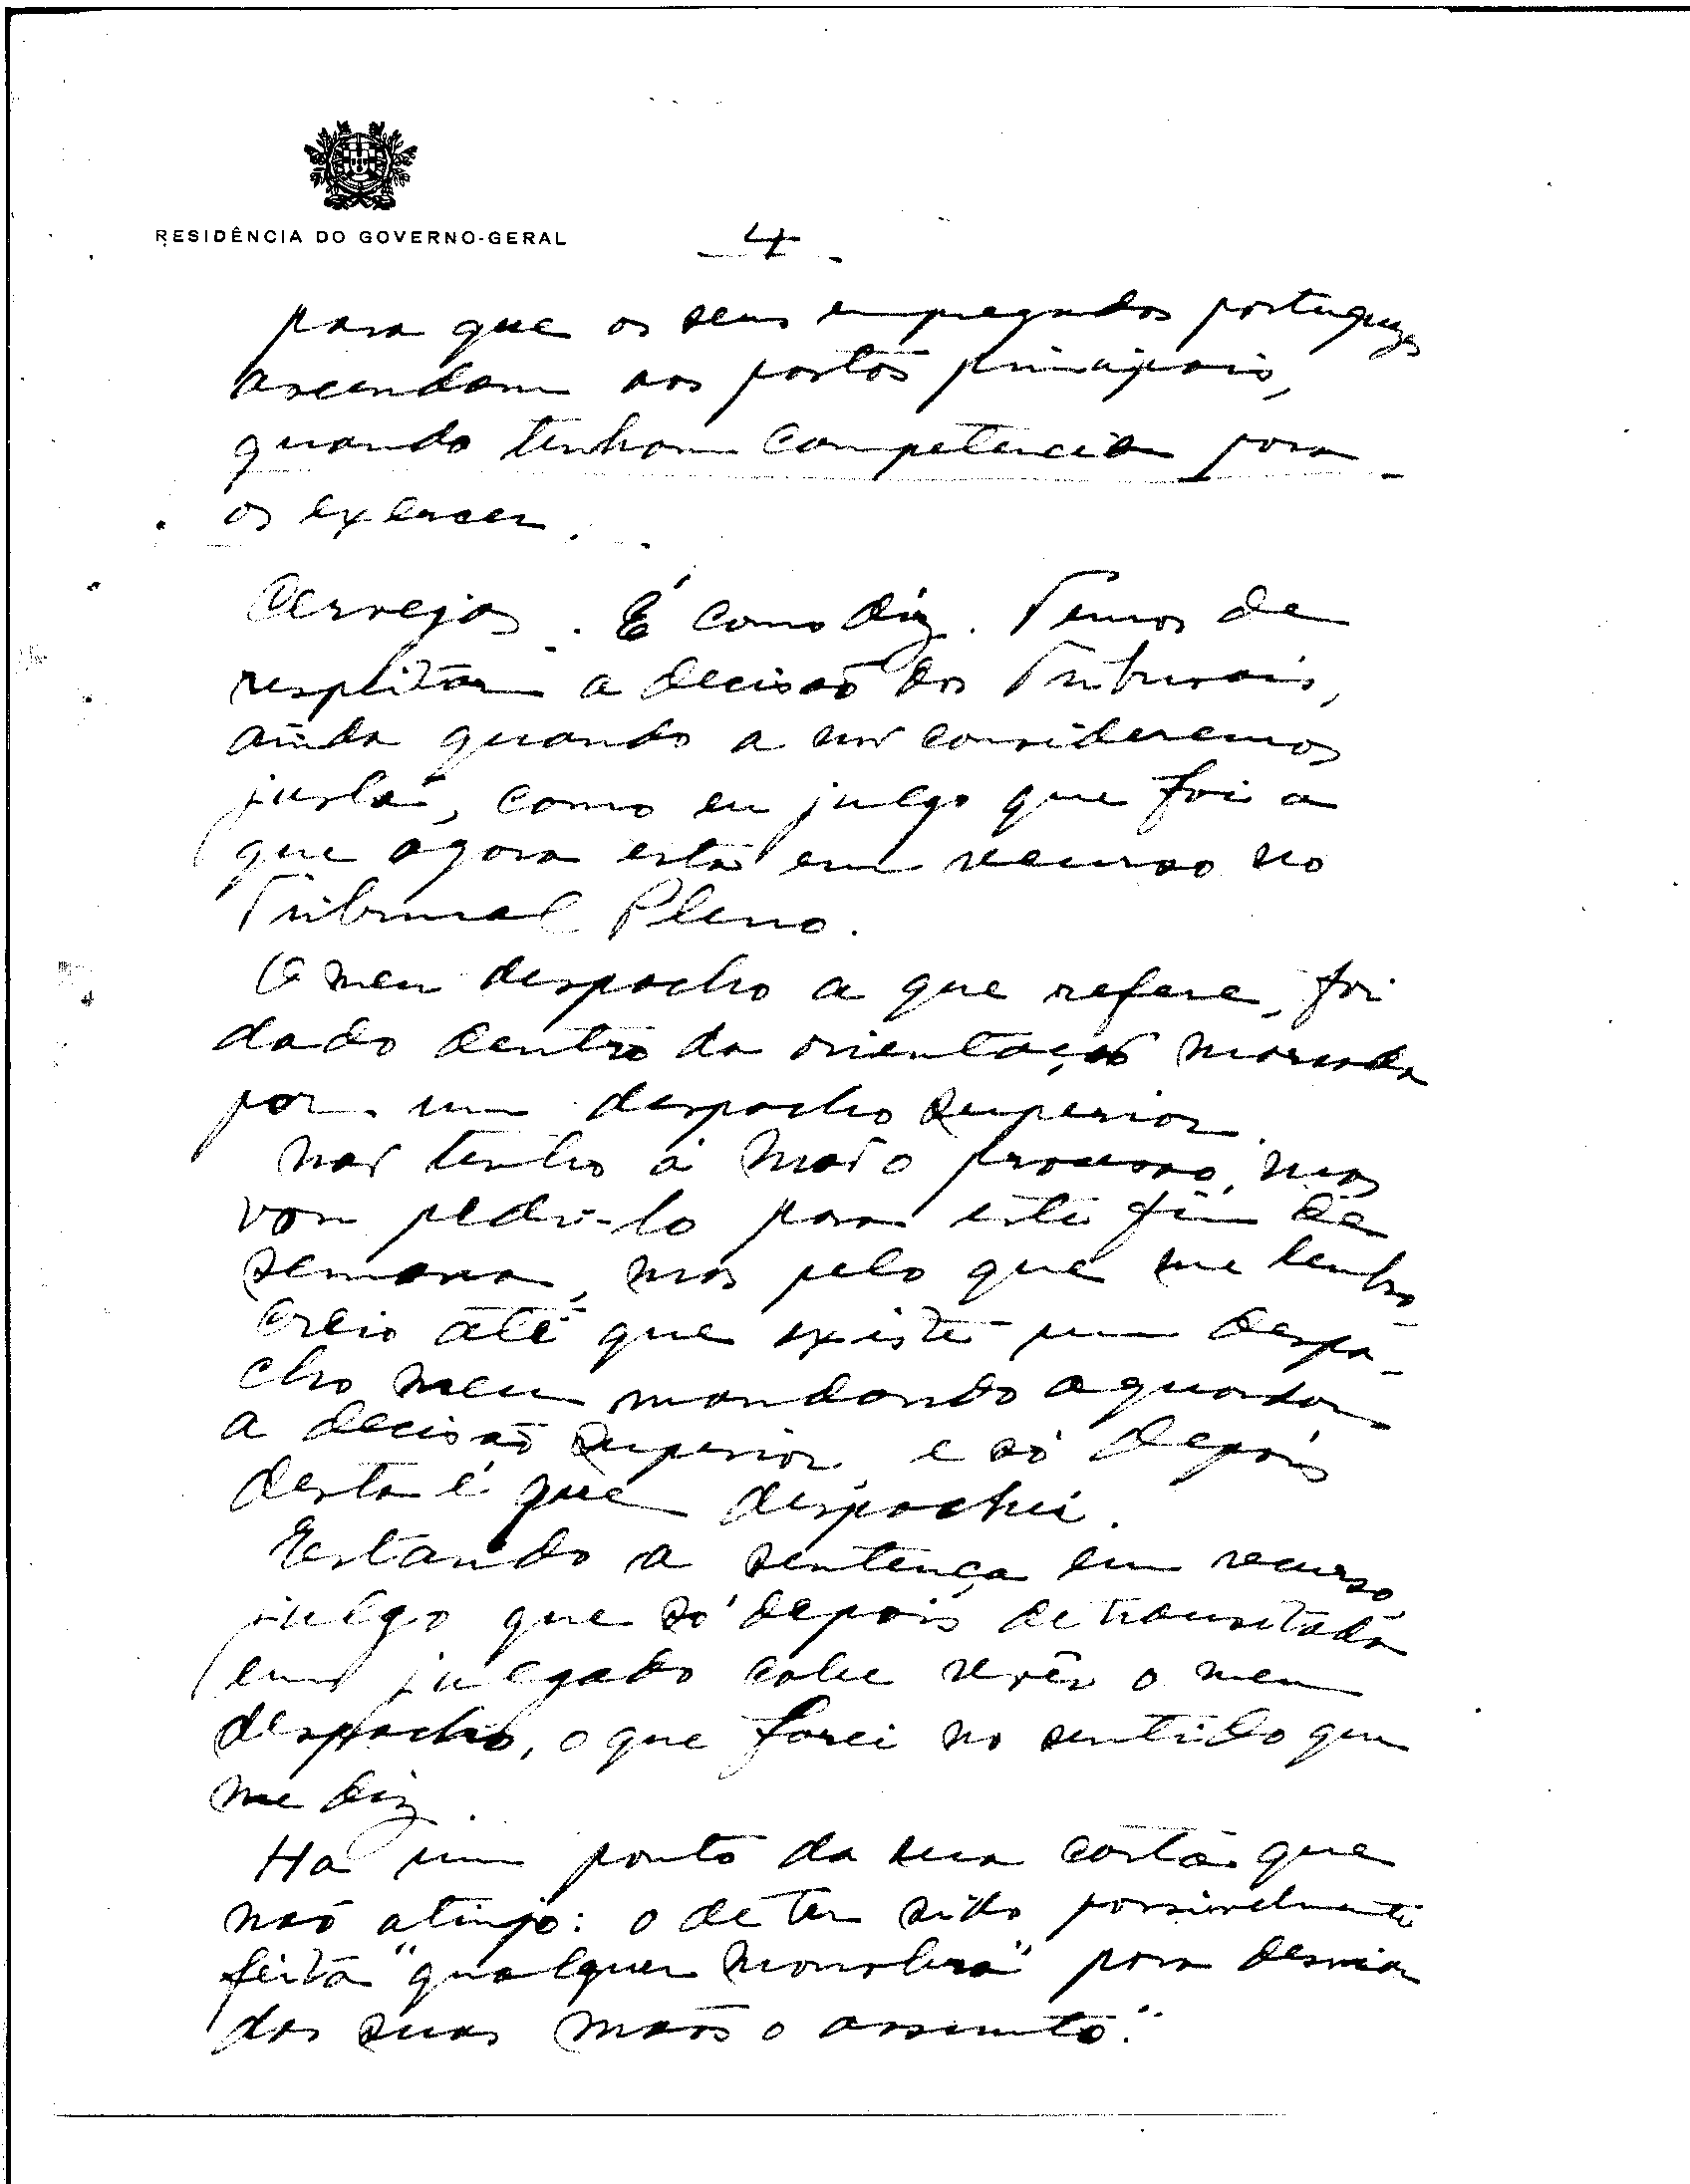 RESIDÊNCIA DO GOVERNO-GERAL
- 4 -
para que os seus empregados portuguezes
ascendam aos postos principais,
quando tenham competencia para
os exercer.
Cervejas. É como diz. Temos de
respeitar a decisão dos Tribunais,
ainda quando a não consideremos
justa, como eu julgo que foi a
que agora está em recurso no
Tribunal Pleno.
O meu despacho a que refere, foi
dado dentro da orientação marcada
por um despacho superior.
Não tenho á mão o processo, mas
vou pedi-lo para este fim de
semana, mas pelo que me lembro
creio até que existe um despa-
cho meu mandando aguardar
a decisão superior, e só depois
desta é que despachei.
Estando a sentença em recurso,
julgo que só depois de transitada
em julgado cabe revêr o meu
despacho, o que farei no sentido que
me diz.
Há um ponto da sua carta que
não atinjo: o de ter sido possivelmente
feita "qualquer manobra" para desviar
das suas mãos o assunto."